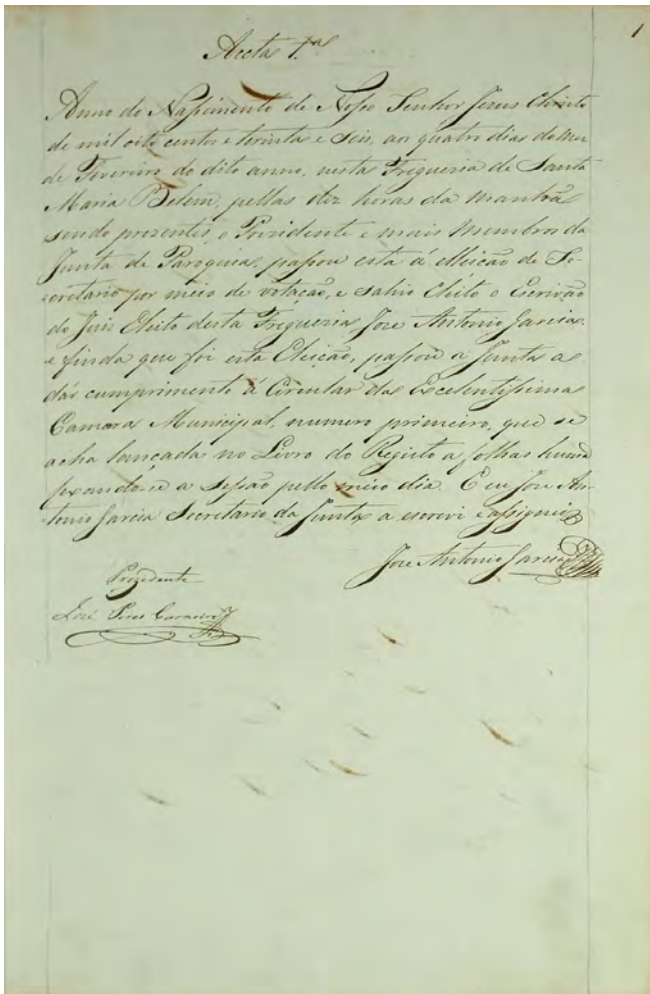 1
Acta 1.ª
Anno do Nassimento de Nosso Senhor Jezus Christo
de mil oito centos e trinta e seis, aos quatro dias do mez
de Fevereiro do dito anno, nesta Fregueria de Santa
Maria Belem, pellas dez horas da manhã
sendo prezentes o Prezidente e mais Membros da
Junta de Paroquia, passou esta á elleição de Se-
cretario por meio de votação, e sahio Eleito o Escrivão
do Juis Eleito desta Fregueria Joze Antonio Garcia.
e finda que foi esta Eleição, passou a Junta a
dár cumprimento á Circular da Excelentissima
Camara Municipal, numero primeiro, que se
acha lançada no Livro do Registo a folhas huma
fexando-se a Sessão pello meio dia. E eu Joze An-
tonio Garcia Secretario da Junta a escrevi e assignei
Joze Antonio Garcia
Prezidente
José Carneiro